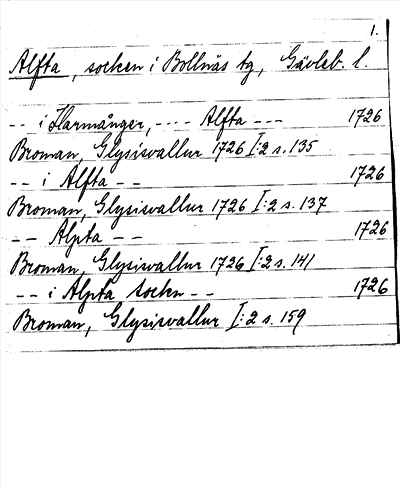 1.
Alfta, socken i Bollnäs tg, Gävleb. l.
-- i Harmånger, ---- Alfta --- 1726
Broman, Glysisvallur 1726 I:2 s. 135
-- i Alfta -- 1726
Broman, Glysisvallur 1726 I:2 s. 137
-- Alpta -- 1726
Broman, Glysisvallur 1726 I:2 s. 141
-- i Alpta sockn -- 1726
Broman, Glysisvallur I:2 s. 159